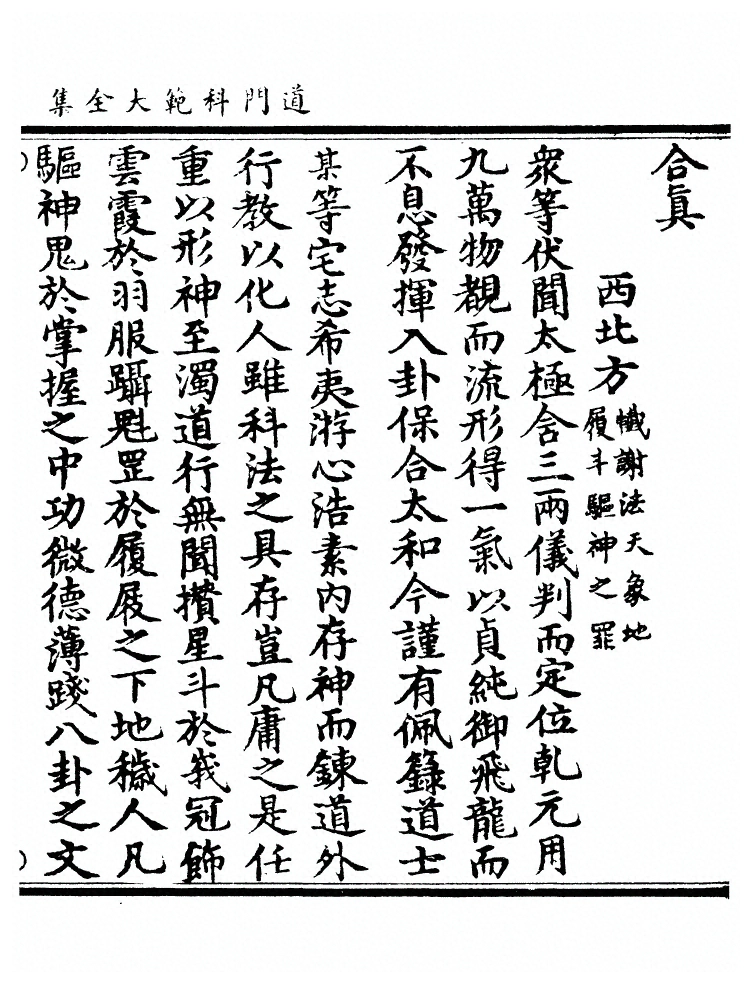 道門科範大全集
合真
西北方
懴謝法天象地
履斗驅神之罪
衆等伏聞太極含三兩儀判而定位乾元用
九萬物覩而流形得一氣以貞純御飛龍而
不息發揮入卦保合太和今謹有佩籙道士
某等宅志希夷游心浩素內存神而鍊道外
行教以化人雖科法之具存豈凡庸之是任
重以形神至濁道行無聞攢星斗於峩冠飾
雲霞於羽服躡魁罡於履屐之下地穢人凡
驅神鬼於掌握之中功微德薄踐八卦之文